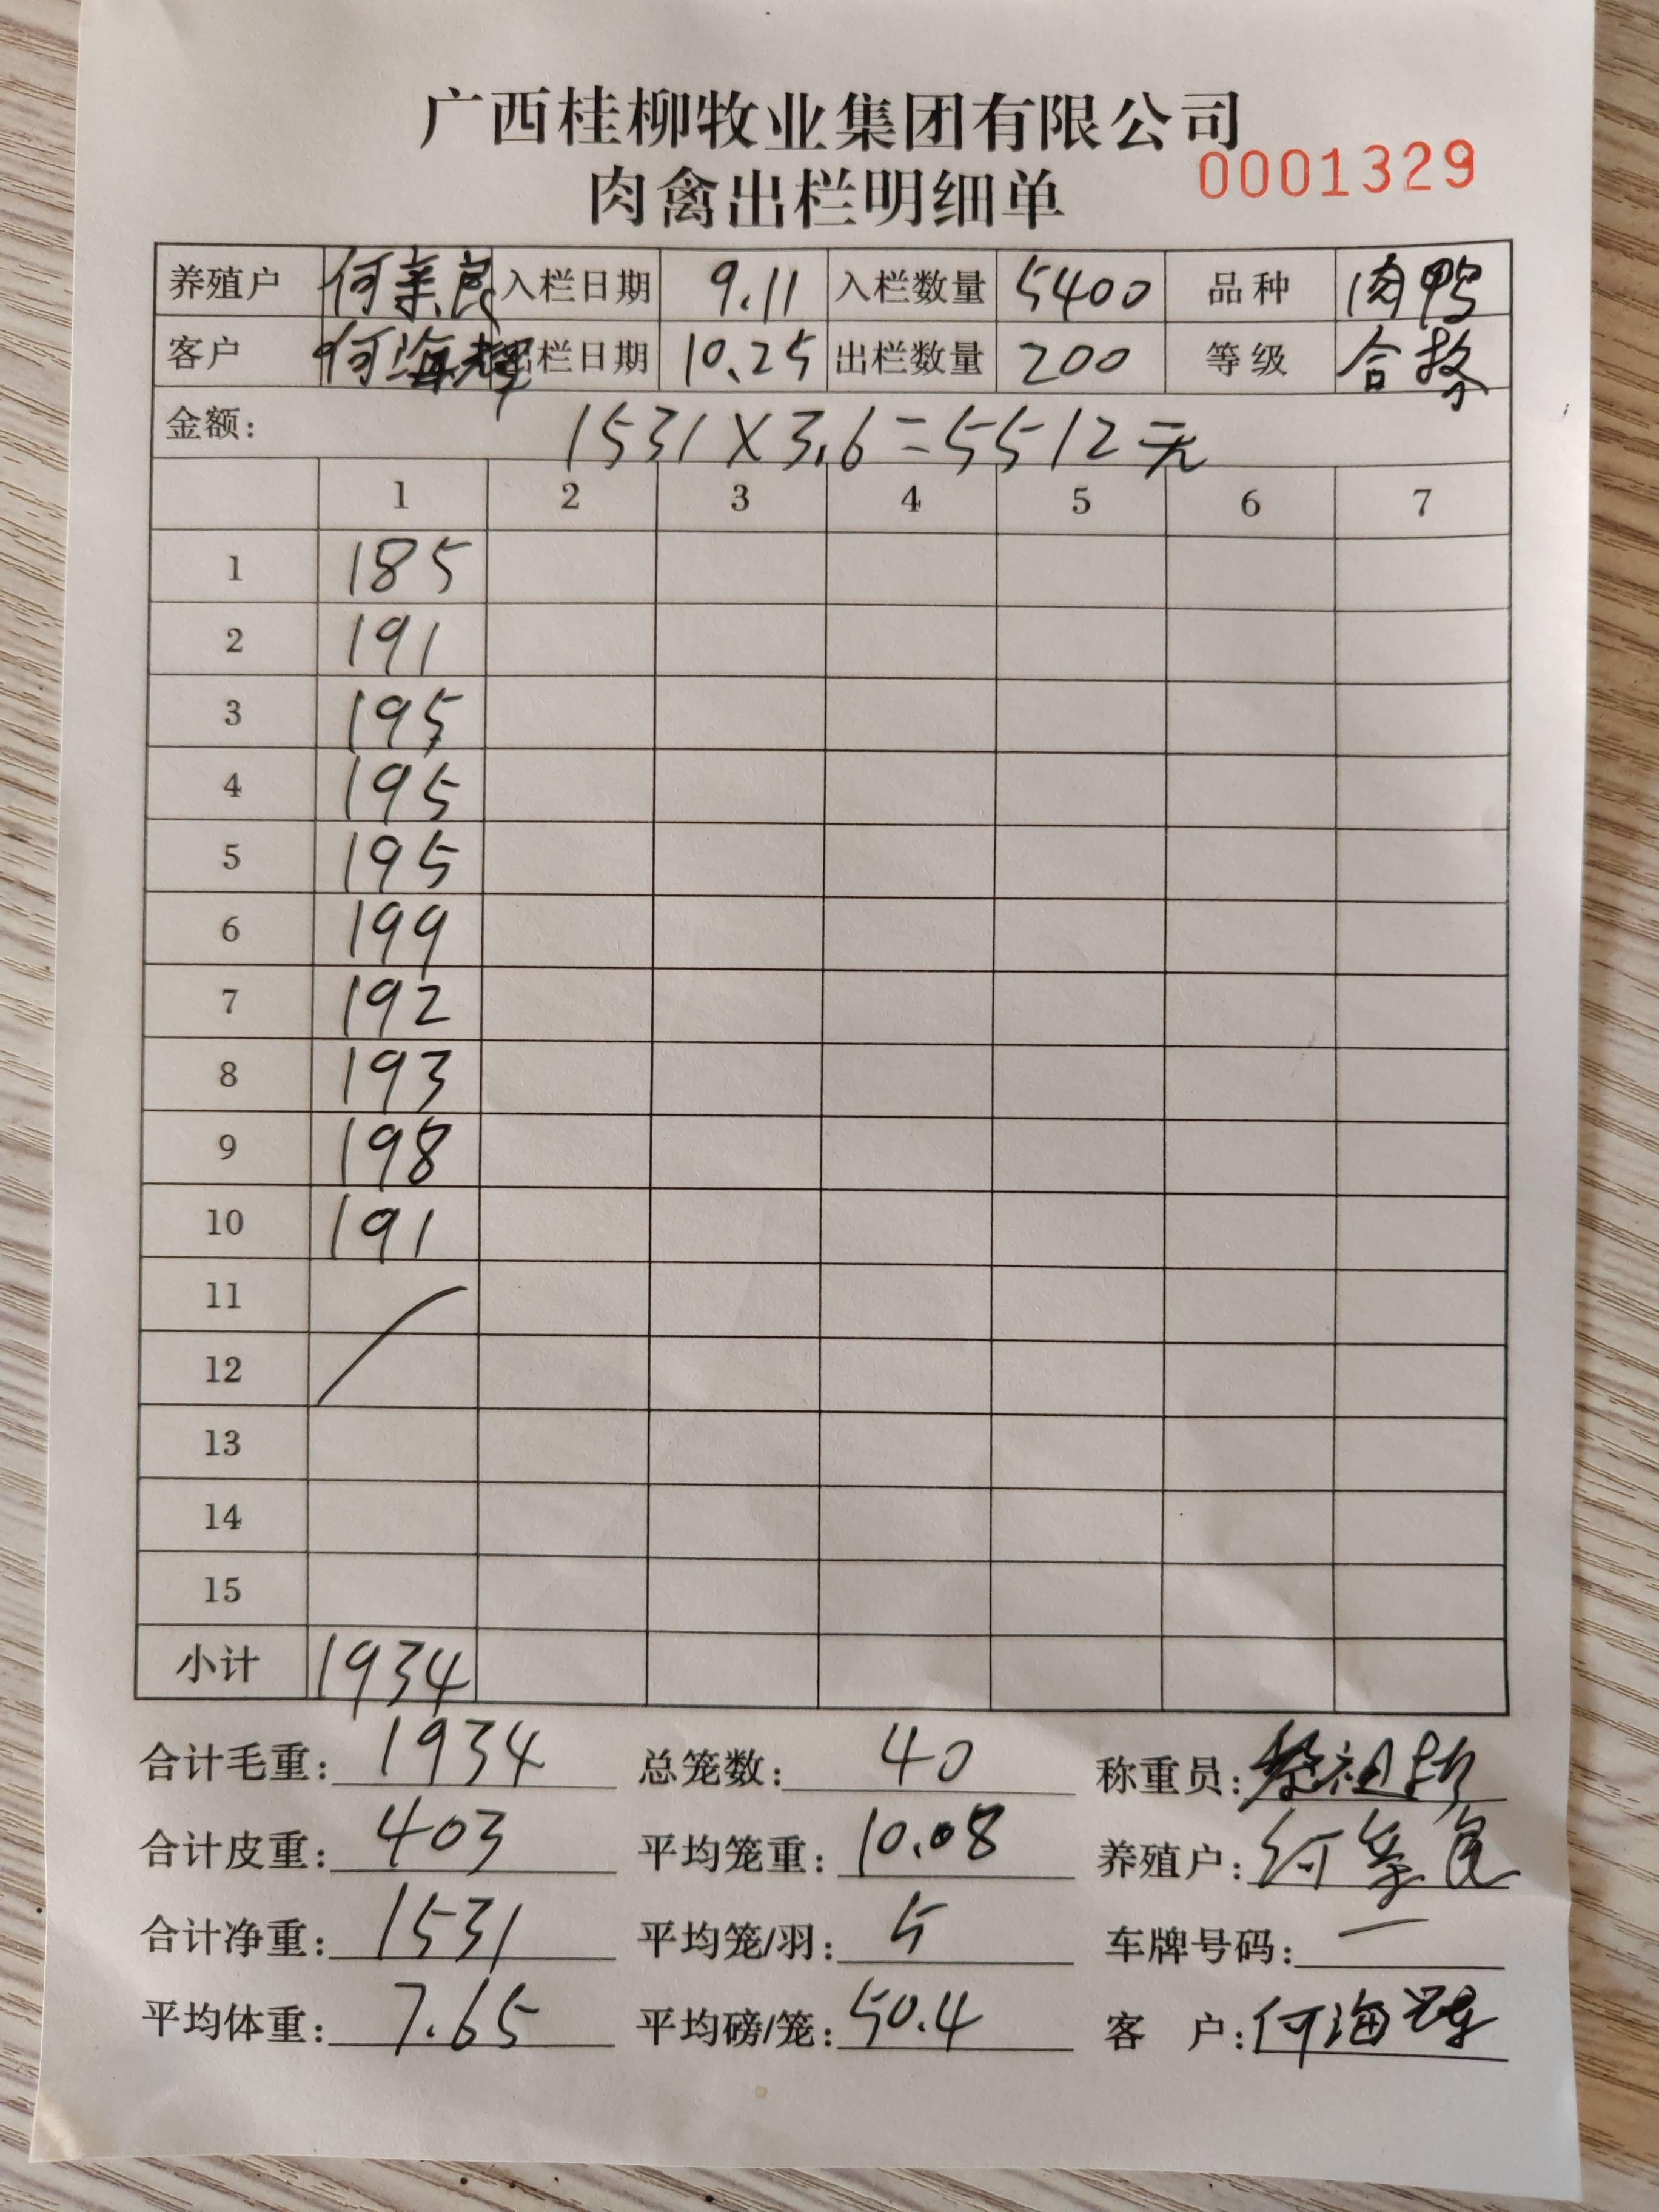 广西桂柳牧业集团有限公司
肉禽出栏明细单 0001329
养殖户 何亲良 入栏日期 9.11 入栏数量 5400 品种 肉鸭
客户 何海辉 出栏日期 10.25 出栏数量 200 等级 合格
金额: 1531×3.6=5512元
1 2 3 4 5 6 7
1 185
2 191
3 195
4 195
5 195
6 199
7 192
8 193
9 198
10 191
11
12
13
14
15
小计 1934
合计毛重: 1934 总笼数: 40 称重员:
合计皮重: 403 平均笼重: 10.08 养殖户: 何亲良
合计净重: 1531 平均笼/羽: 5 车牌号码: 一
平均体重: 7.65 平均磅/笼: 50.4 客 户: 何海辉